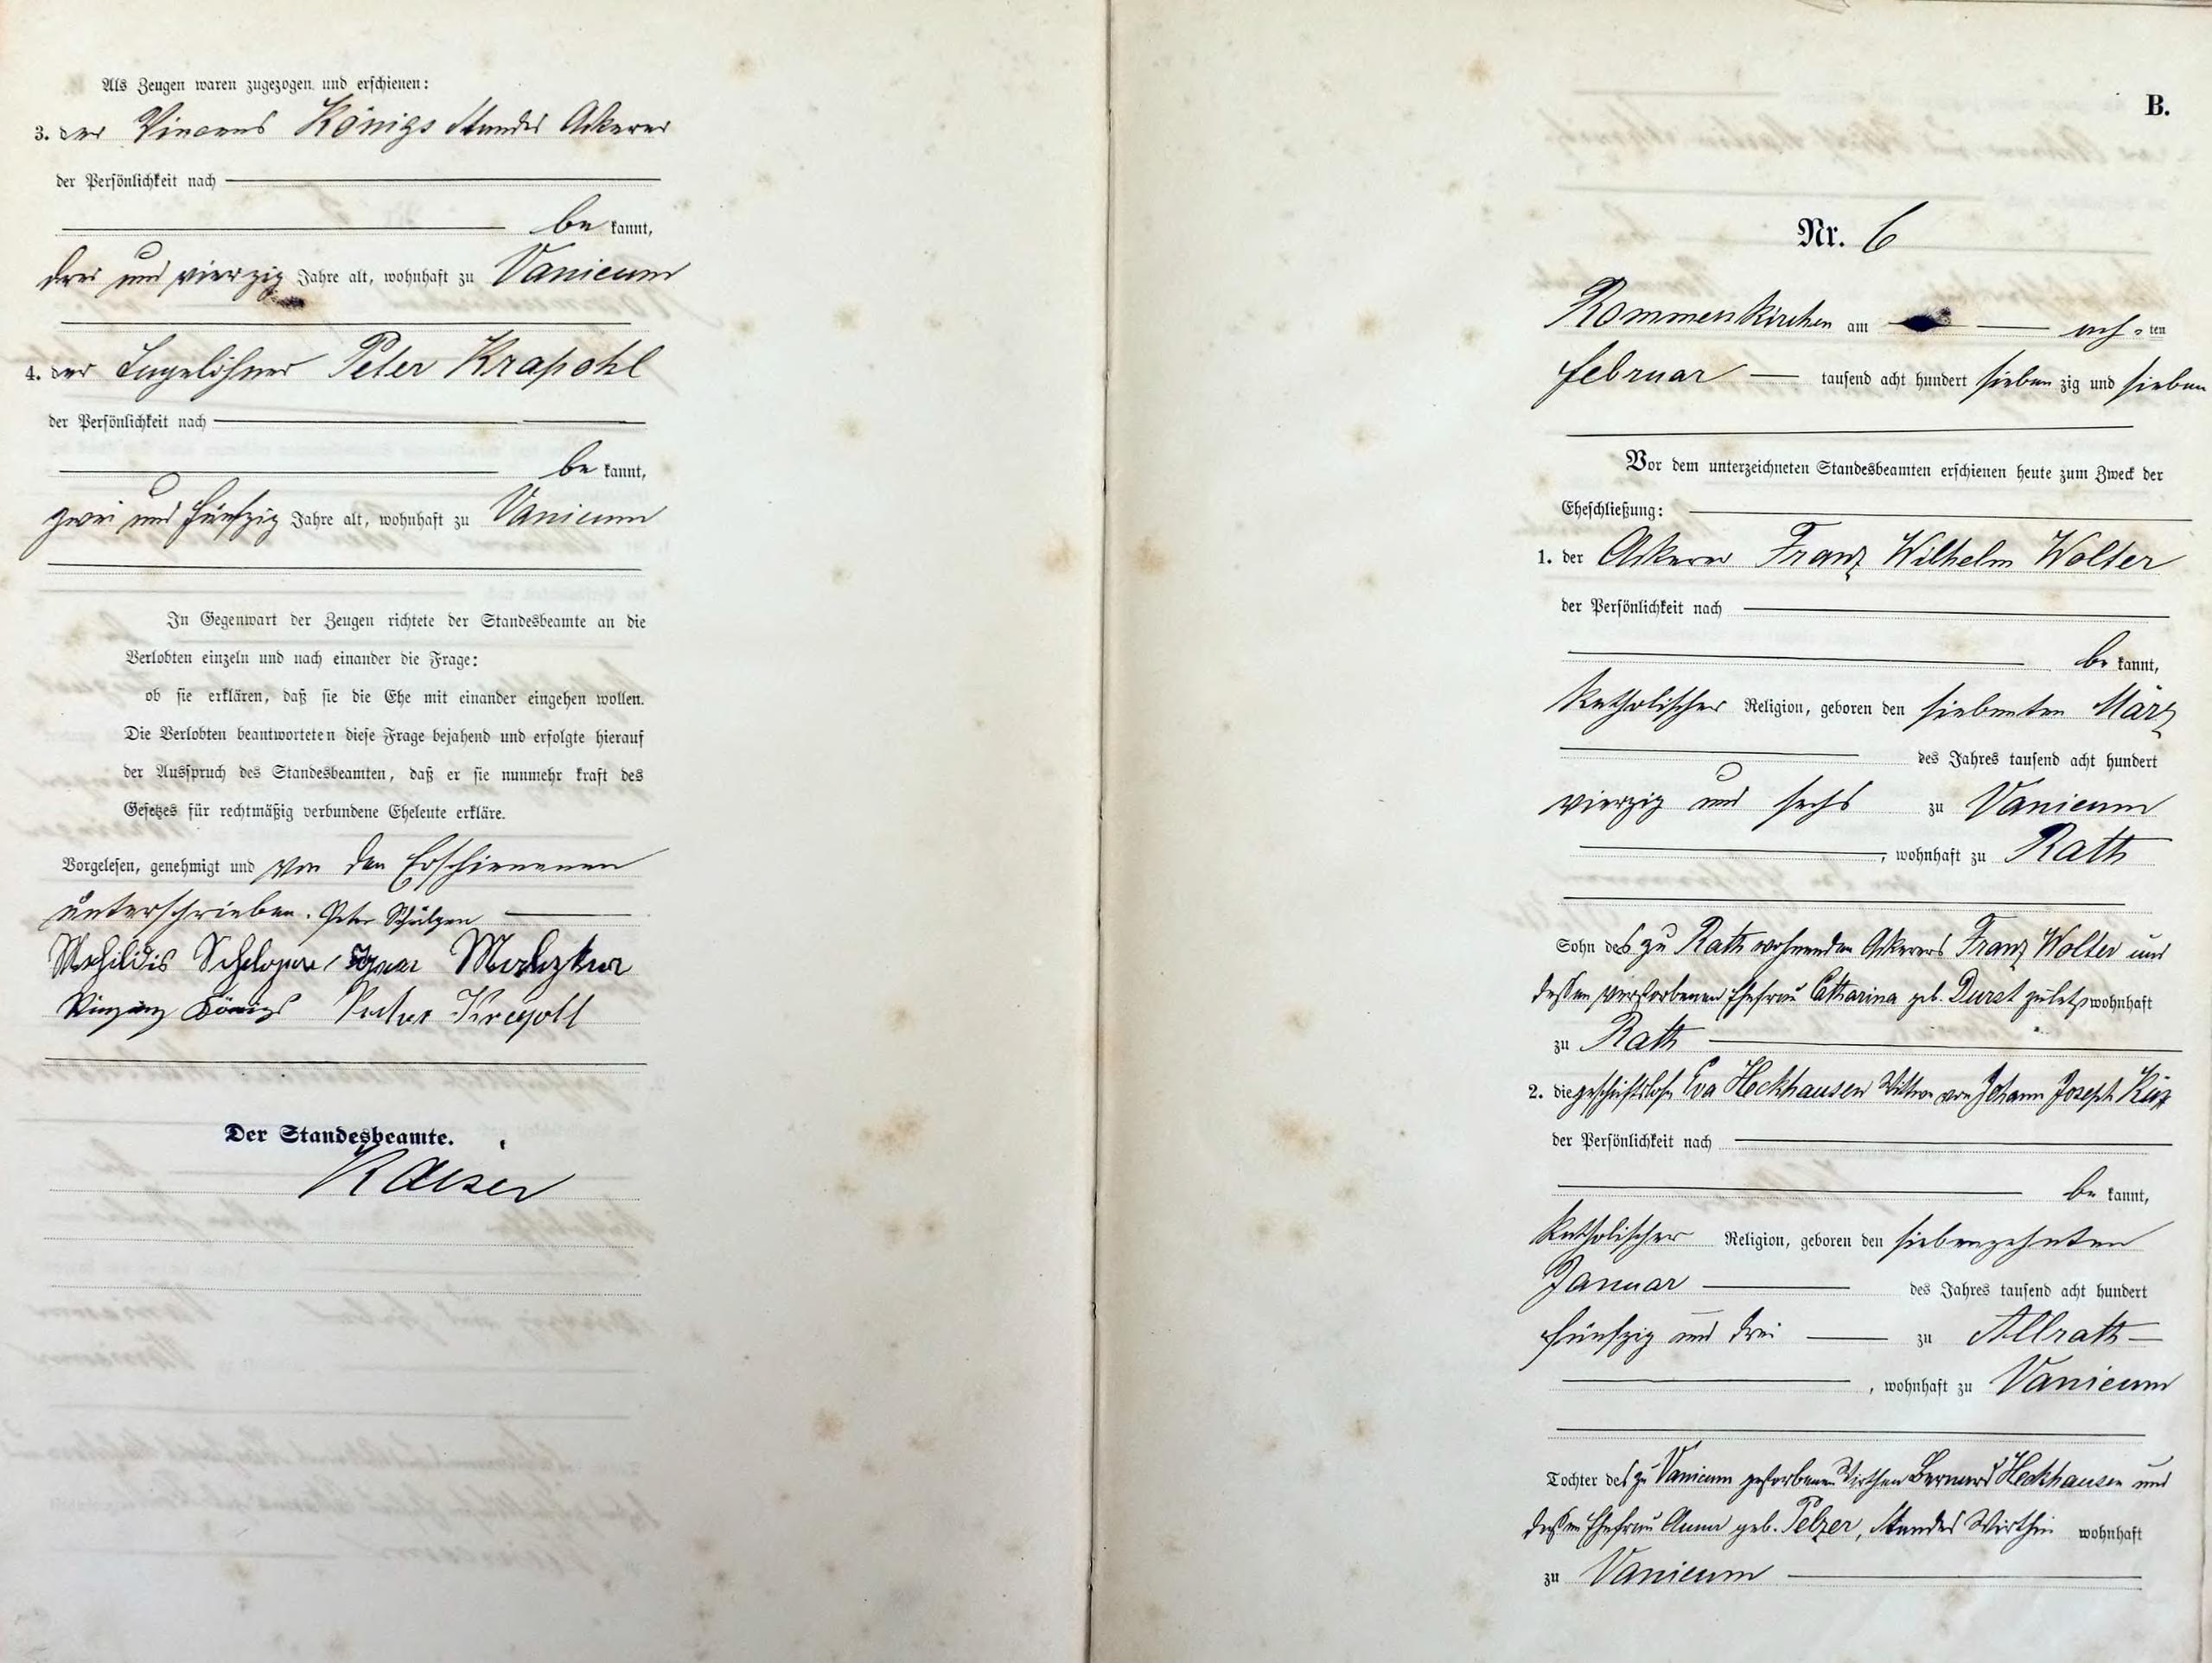 Als Zeugen waren zugezogen und erschienen:
3. der Vincens Königs Standes Ackerer
der Persönlichkeit nach
be kannt,
drei und vierzig Jahre alt, wohnhaft zu Vanicum
4. der Tagelöhner Peter Krapohl
der Persönlichkeit nach
be kannt,
zwei und fünfzig Jahre alt, wohnhaft zu Vanicum
In Gegenwart der Zeugen richtete der Standesbeamte an die
Verlobten einzeln und nach einander die Frage:
ob sie erklären, daß sie die Ehe mit einander eingehen wollen.
Die Verlobten beantworteten diese Frage bejahend und erfolgte hierauf
der Ausspruch des Standesbeamten, daß er sie nunmehr kraft des
Gesetzes für rechtmäßig verbundene Eheleute erkläre.
Vorgelesen, genehmigt und von den Erschienenen
unterschrieben. Peter Schülgen
Vinzenz Königs Peter Krapohl
Der Standesbeamte.
Kaiser
B.
Nr. 6
Rommerskirchen am ach- ten
Februar tausend acht hundert sieben zig und sieben
Vor dem unterzeichneten Standesbeamten erschienen heute zum Zweck der
Eheschließung:
1. der Ackerer Franz Wilhelm Wolter
der Persönlichkeit nach
be kannt,
katholischer Religion, geboren den siebenten März
des Jahres tausend acht hundert
vierzig und sechs zu Vanicum
, wohnhaft zu Rath
Sohn des zu Rath wohnenden Ackerers Franz Wolter und
dessen verstorbenen Ehefrau Catharina geb. Durst zuletzt wohnhaft
zu Rath
2. die geschäftslose Eva Heckhausen Wittwe von Johann Joseph
der Persönlichkeit nach
be kannt,
katholischer Religion, geboren den siebenzehnten
Januar des Jahres tausend acht hundert
fünfzig und drei zu Allrath
, wohnhaft zu Vanicum
Tochter des zu Vanicum gestorbenen Wirthen Bernard Heckhausen und
dessen Ehefrau Anna geb. Pelzer, Standes Wirthin wohnhaft
zu Vanicum